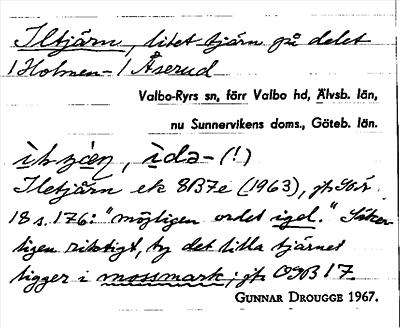 Iltjärn, litet tjärn på delet
/ Holmen - / Åserud
Valbo-Ryrs sn, förr Valbo hd, Älvsb. län,
nu Sunnervikens doms., Göteb. län.
ìda- (!)
Iletjärn ek 8B7e (1963), jfr SOÄ
18 s. 176: "möjligen ordet igel." Säker-
ligen riktigt, ty det lilla tjärnet
ligger i mossmark; jfr OGB 17.
GUNNAR DROUGGE 1967.